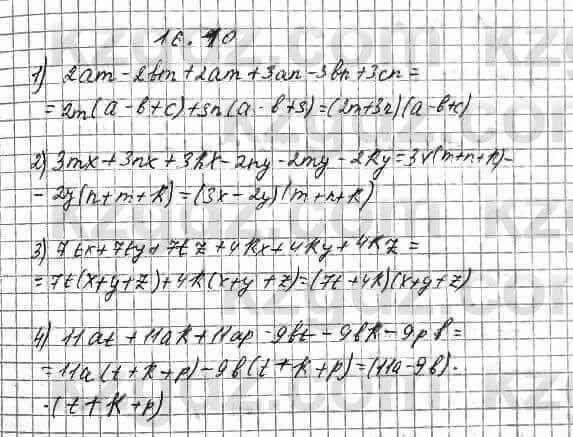 16.10
1) 2am - 2bm + 2am + 3an - 3bn + 3cn =
= 2m(a - b + c) + 3n(a - b + s) = (2m + 3n)(a - b + c)
2) 3mx + 3nx + 3kx - 2ny - 2my - 2ky = 3x(m + n + k) -
- 2y(n + m + k) = (3x - 2y)(m + n + k)
3) 7tx + 7ty + 7tz + 4kx + 4ky + 4kz =
= 7t(x + y + z) + 4k(x + y + z) = (7t + 4k)(x + y + z)
4) 11at + 11ak + 11ap - 9bt - 9bk - 9pb =
= 11a(t + k + p) - 9b(t + k + p) = (11a - 9b) ·
· (t + k + p)